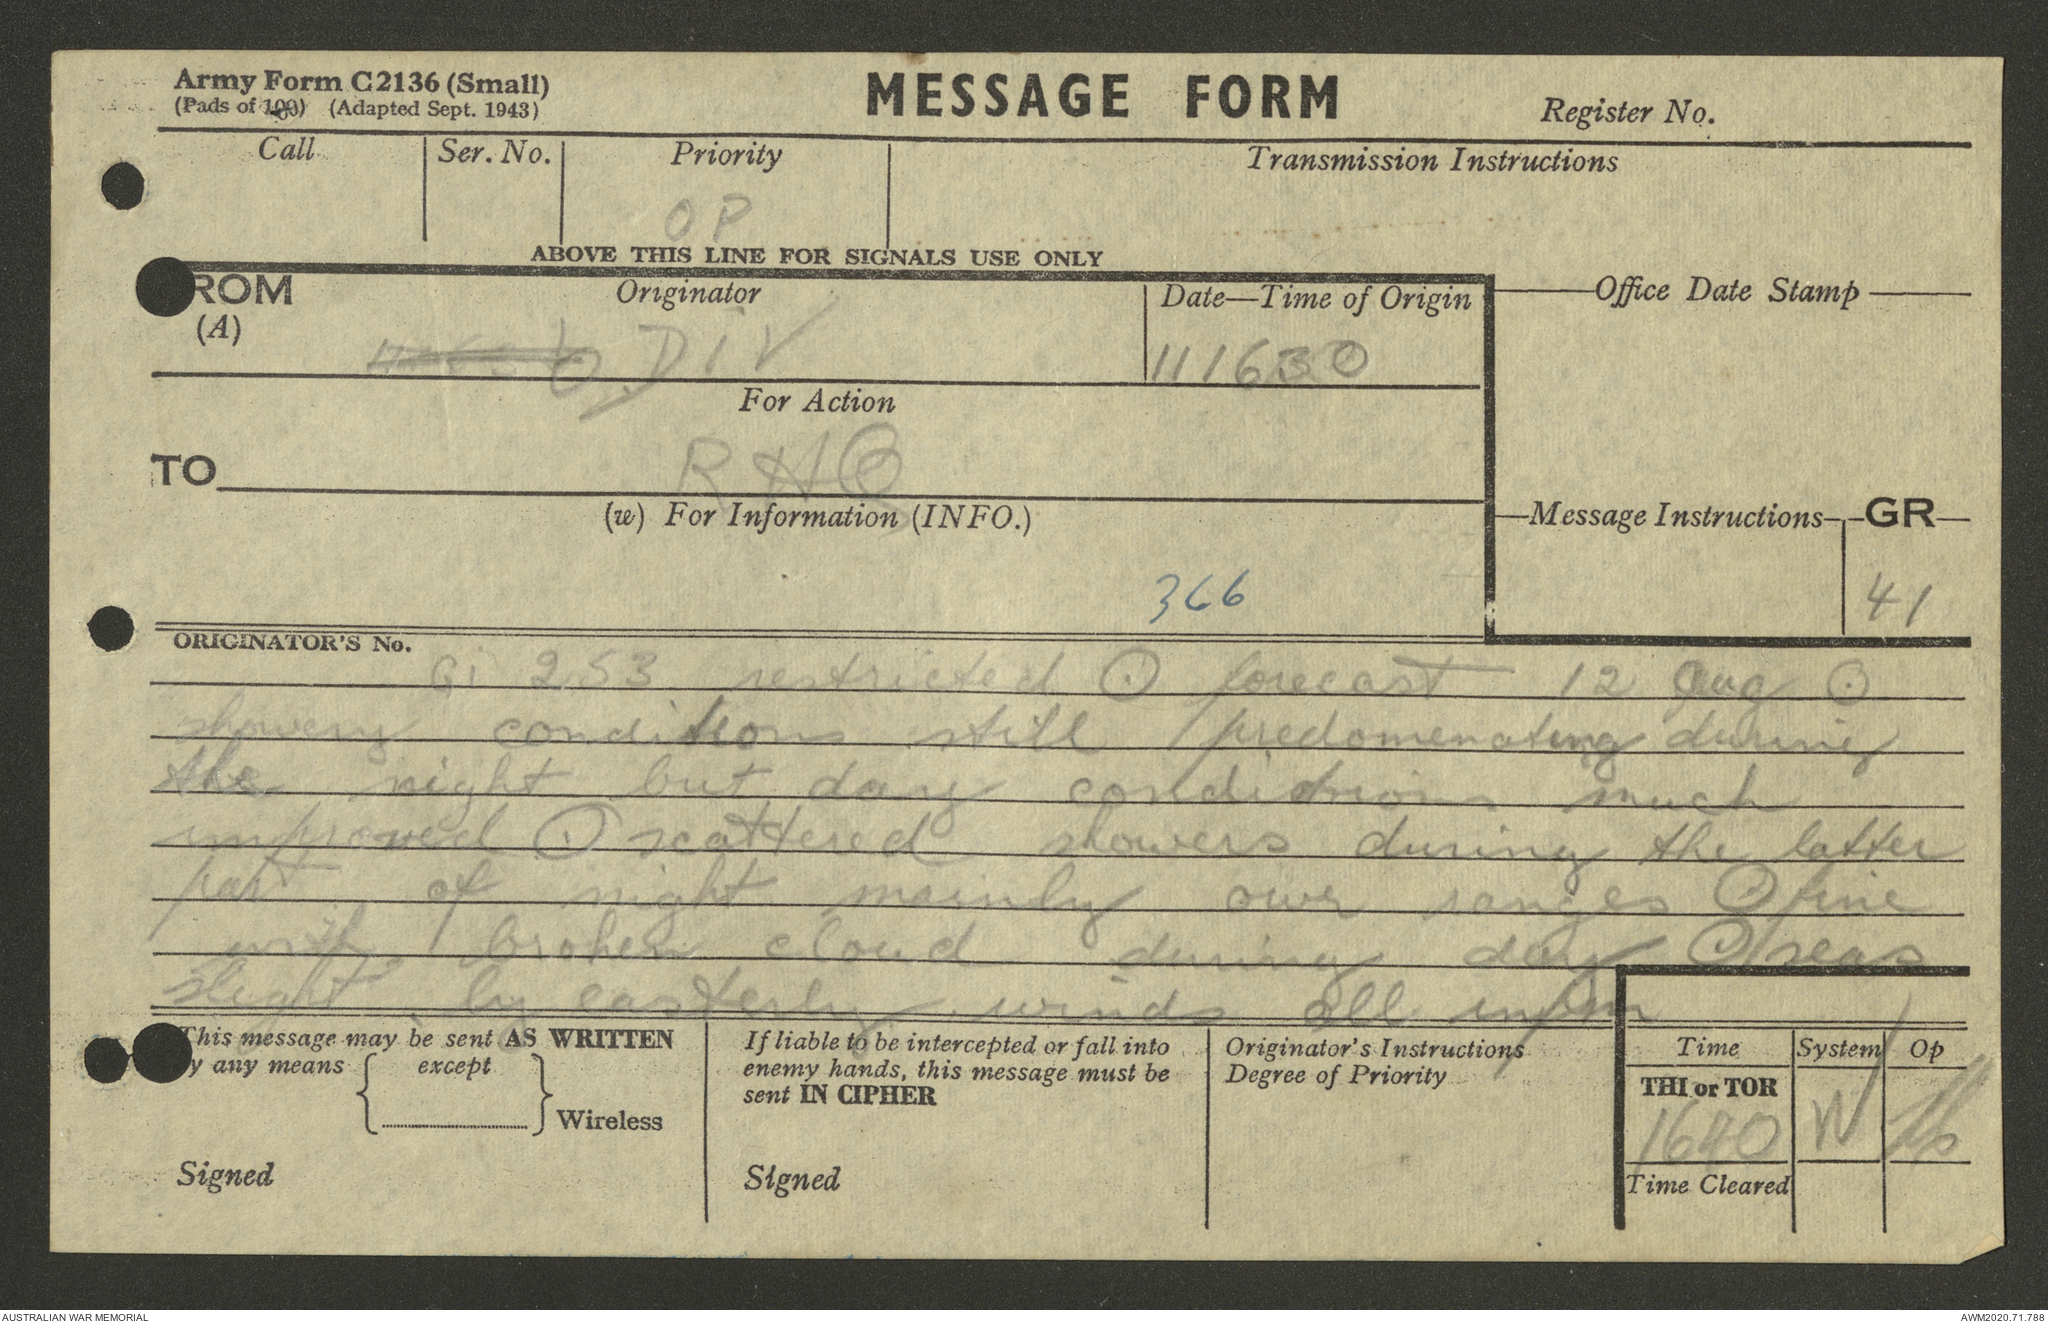 Army Form C2136 (Small)
(Pads of 100) (Adapted Sept. 1943)
MESSAGE FORM
Register No.
Call
Ser. No.
Priority
Transmission Instructions
OP
ABOVE THIS LINE FOR SIGNALS USE ONLY
ROM
(A)
Originator
Date—Time of Origin
Office Date Stamp
6 DIV
111630
For Action
TO
RHQ
(w) For Information (INFO.)
Message Instructions
GR
366
41
ORIGINATOR'S No.
GI 253 restricted ⊙ forecast 12 Aug ⊙
showery conditions still predomenating during
the night but day conditions much
improved ⊙ scattered showers during the latter
part of night mainly over ranges ⊙ fine
with broken cloud during day ⊙ seas
slight by easterly winds all infm
This message may be sent AS WRITTEN
y any means { except } Wireless
Signed
If liable to be intercepted or fall into
enemy hands, this message must be
sent IN CIPHER
Signed
Originator's Instructions
Degree of Priority
Time
System
Op
THI or TOR
1640
W
Time Cleared
AUSTRALIAN WAR MEMORIAL
AWM2020.71.788